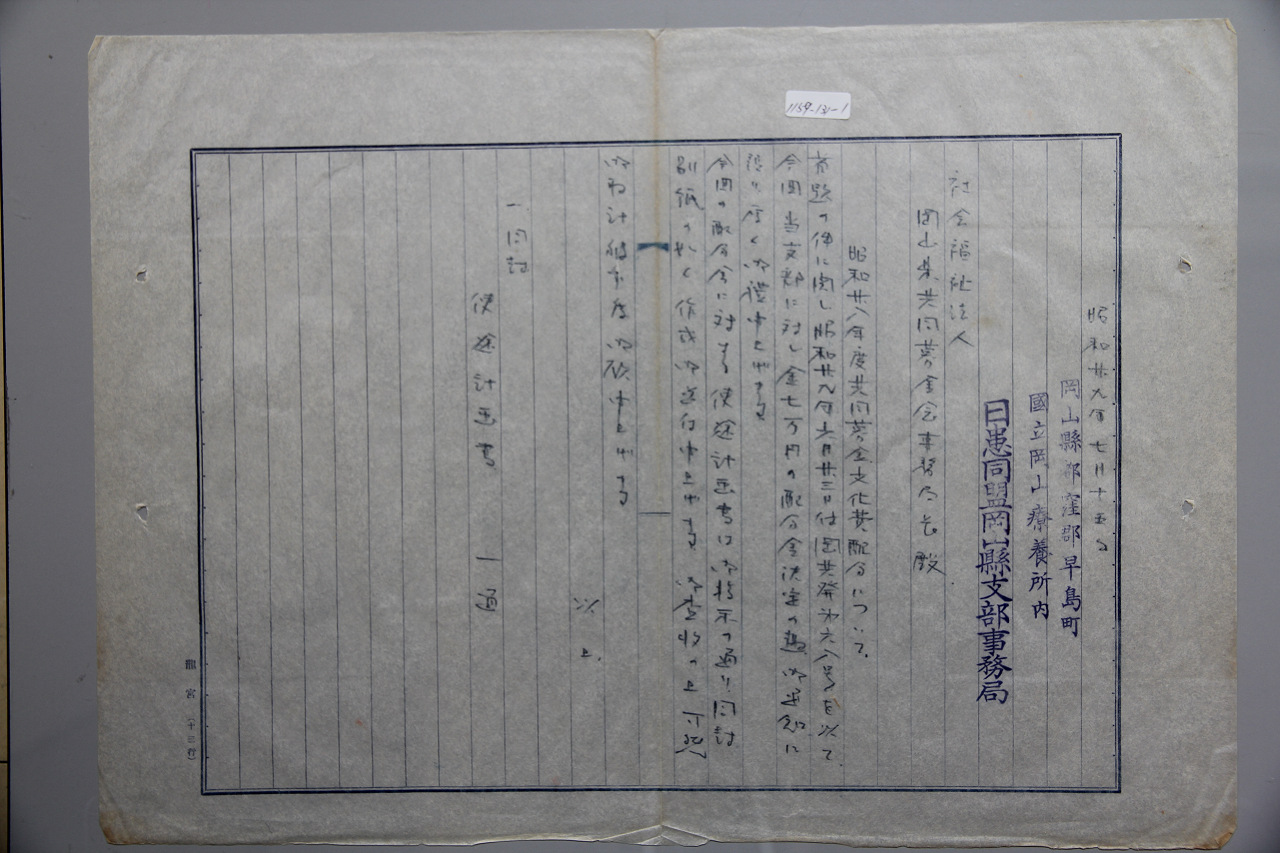 1159-131-1
昭和廿九年七月十五日
岡山縣都窪郡早島町
國立岡山療養所内
日患同盟岡山縣支部事務局
社会福祉法人
岡山県共同募金会事務局長殿
昭和廿八年度共同募金文化費配分について
首題の件に関し昭和廿九年六月廿三日付岡共発第六八号を以て
今回当支部に対し金七万円の配分金決定の趣御通知に
接し厚く御禮申上げます
今回の配分金に対する使途計画書は御指示の通り同封
別紙の如く作成御送付申上げます 御査收の上
御取計給り度御願申上げます
以上.
一、同封
使途計画書 一通
龍宮(十三行)